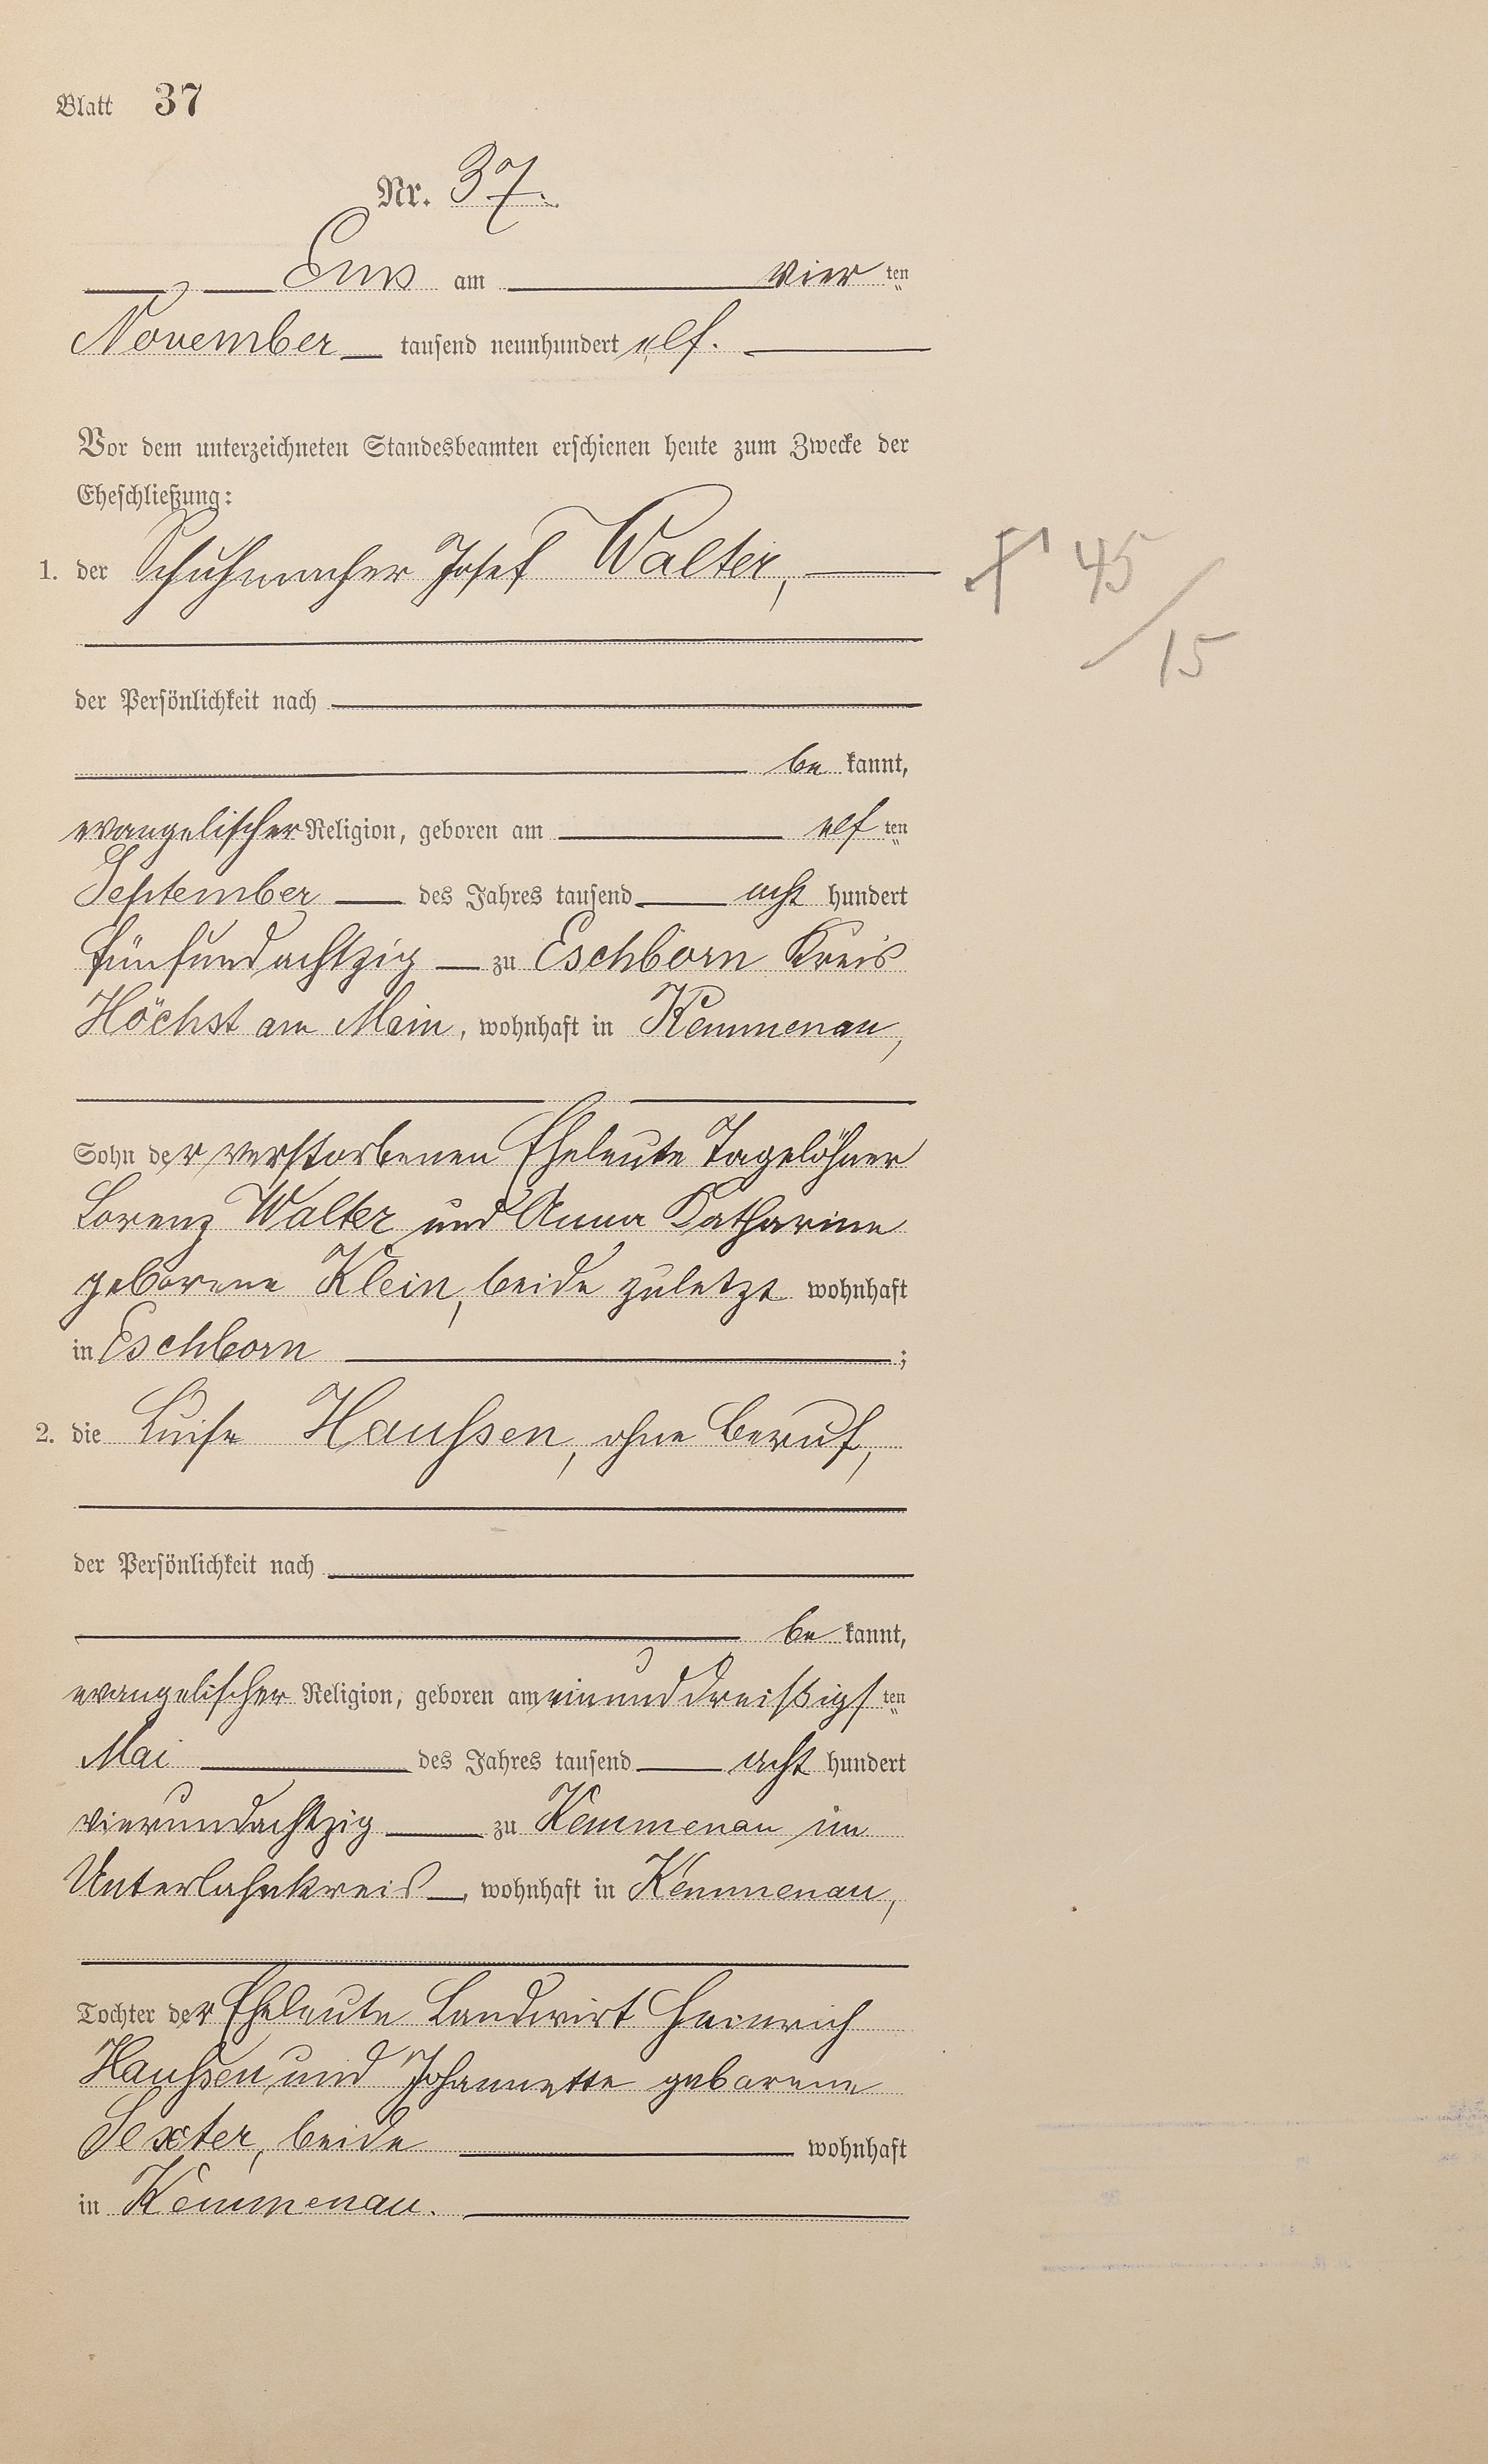 Blatt 37
Nr. 37.
Ems am vier ten
November tausend neunhundert elf.
Vor dem unterzeichneten Standesbeamten erschienen heute zum Zwecke der
Eheschließung:
1. der Schuhmacher Josef Walter,
der Persönlichkeit nach
be kannt,
evangelischer Religion, geboren am elf ten
September des Jahres tausend acht hundert
fünfundachtzig zu Eschborn Kreis
Höchst am Main, wohnhaft in Kemmenau,
Sohn der verstorbenen Eheleute Tagelöhner
Lorenz Walter und Anna Katharine
geborene Klein, beide zuletzt wohnhaft
in Eschborn ;
2. die Luise Haußen, ohne Beruf,
der Persönlichkeit nach
be kannt,
evangelischer Religion, geboren am einunddreißigs ten
Mai des Jahres tausend acht hundert
vierundachtzig zu Kemmenau im
Unterlahnkreis, wohnhaft in Kemmenau,
Tochter der Eheleute Landwirt Heinrich
Haußen und Johannette geborene
Sexter, beide wohnhaft
in Kemmenau.
† 45
/ 15